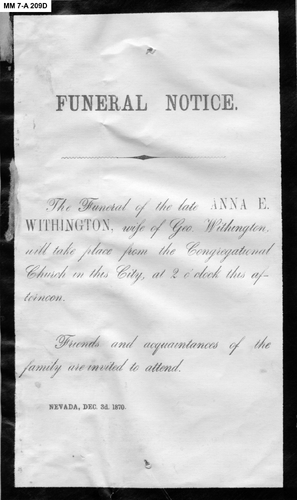 MM 7-A 209D
FUNERAL NOTICE.
The Funeral of the late ANNA E.
WITHINGTON, wife of Geo. Withington,
will take place from the Congregational
Church in this City, at 2 o'clock this af-
ternoon.
Friends and acquaintances of the
family are invited to attend.
NEVADA, DEC. 3d, 1870.